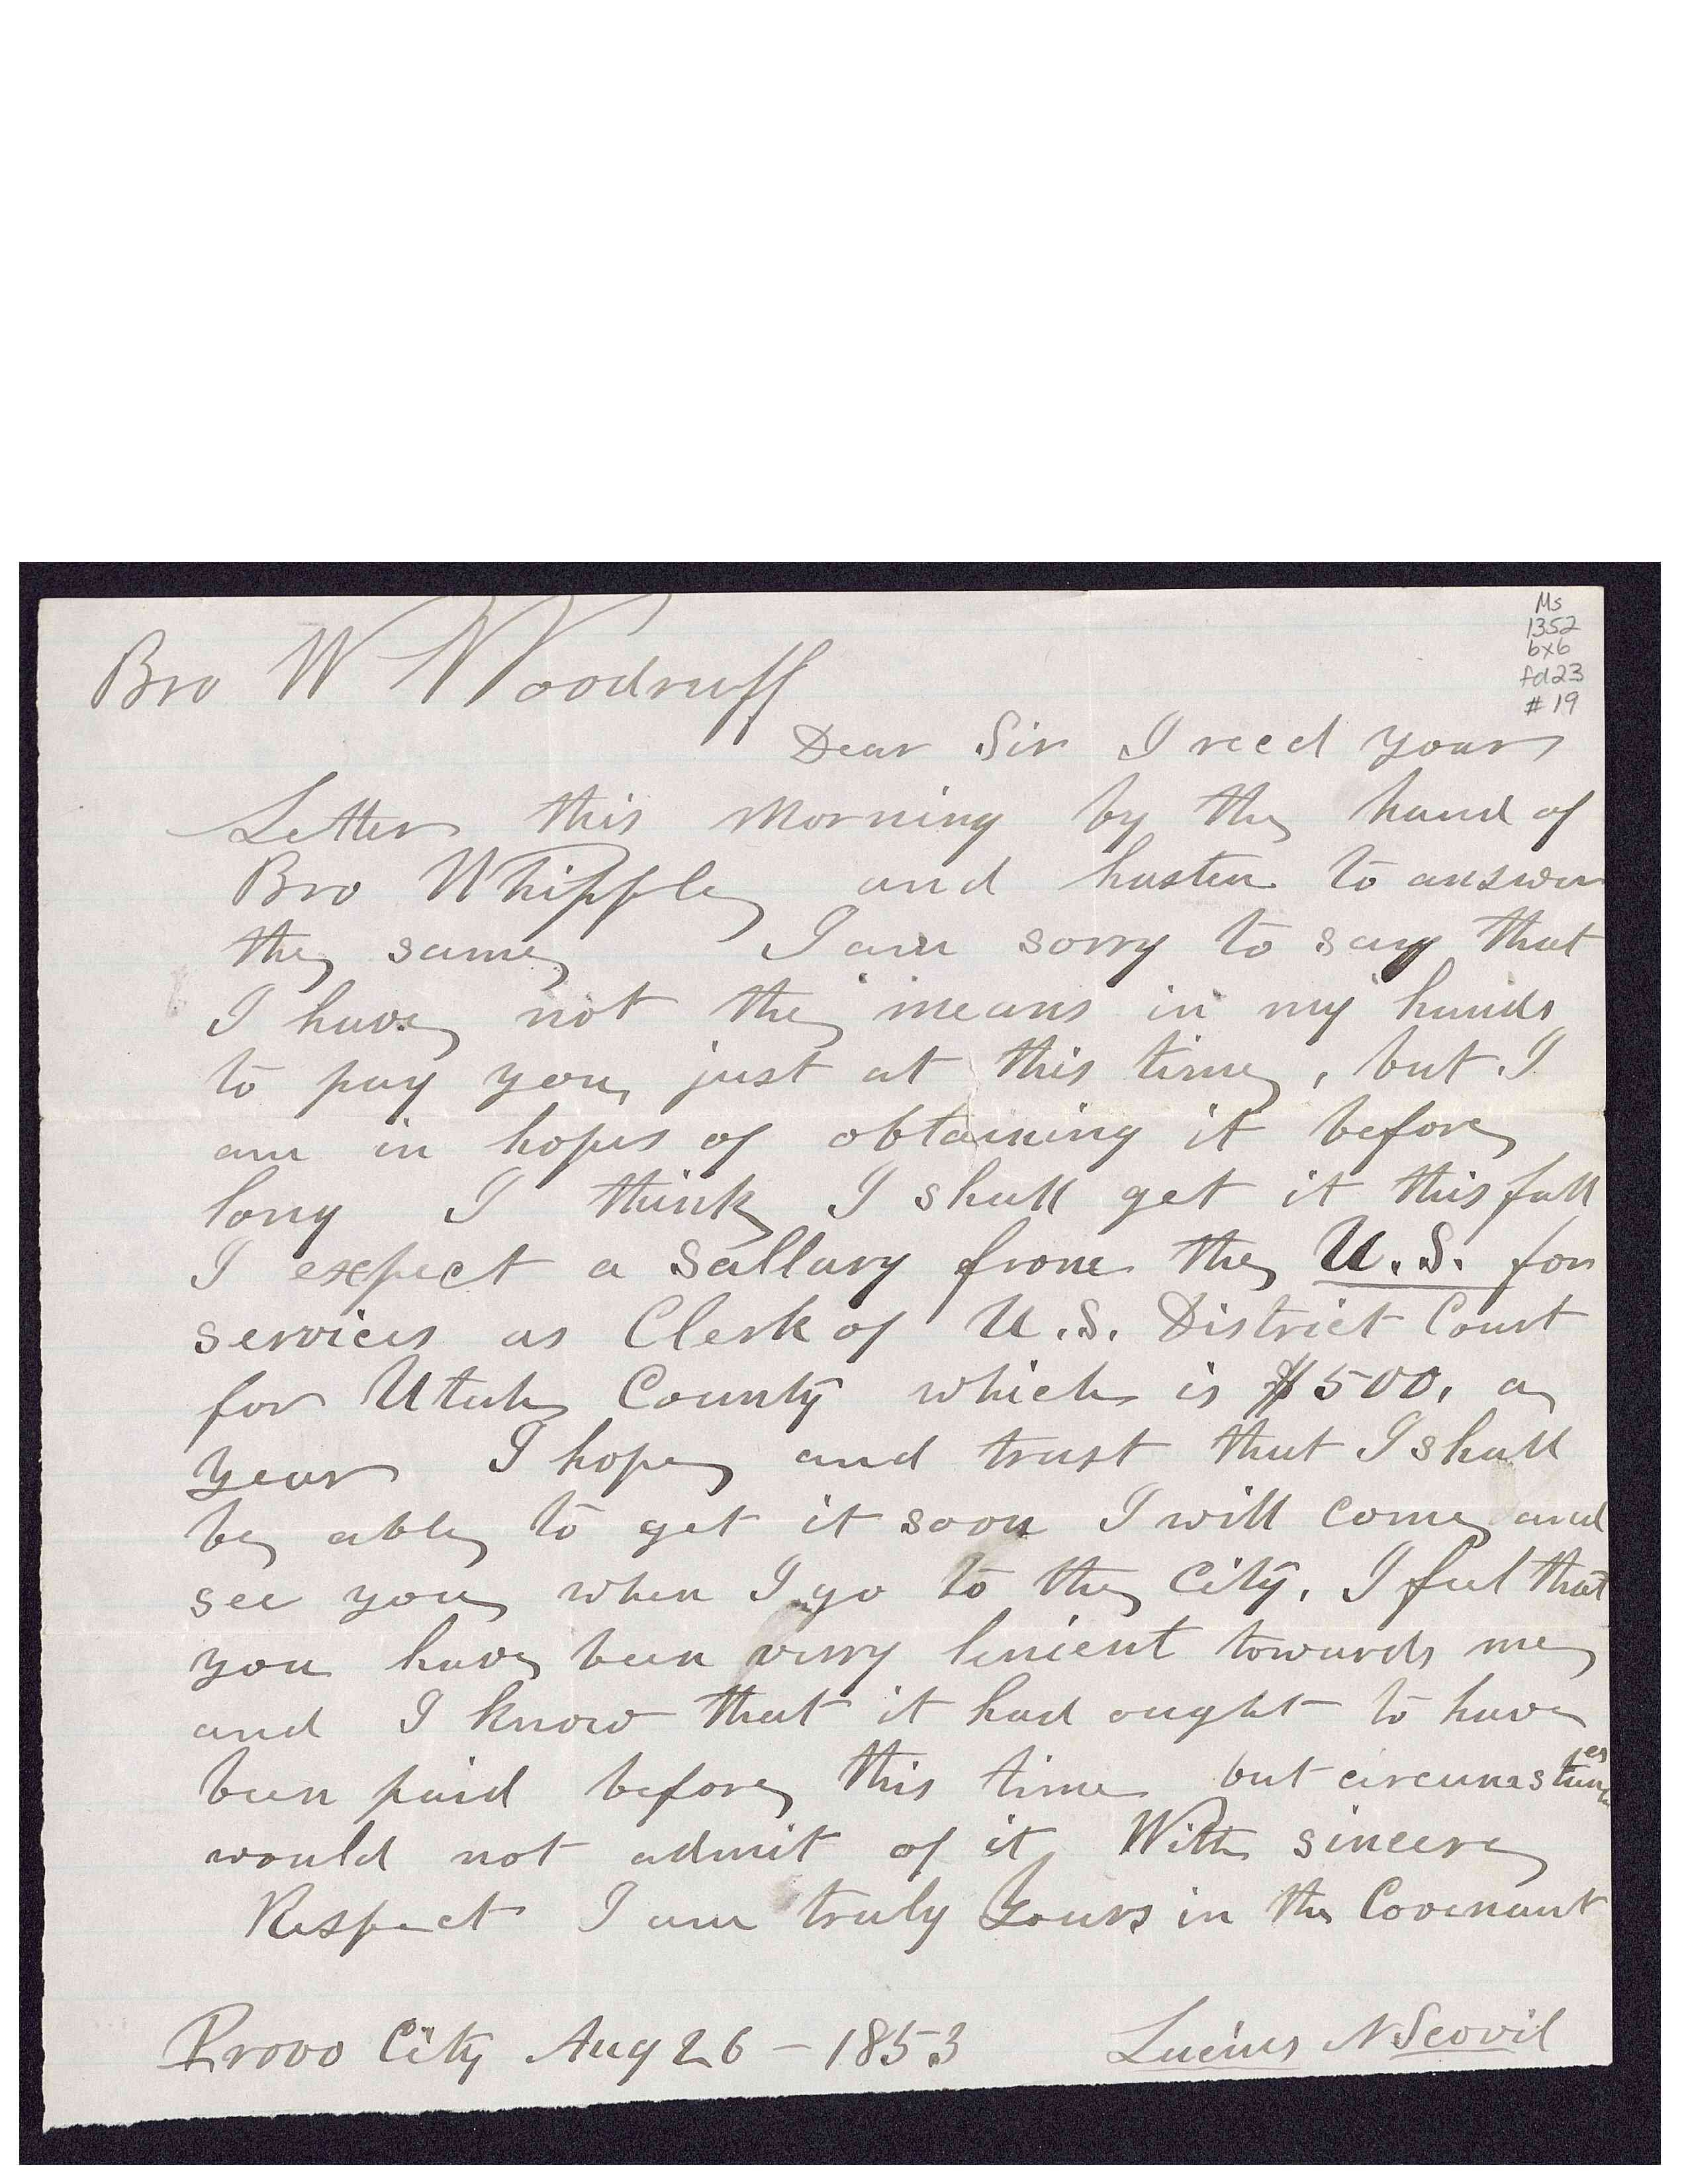 Ms
1352
bx6
fd23
#19
Bro W Woodruff
Dear Sir I recd your
Letter this Morning by the hand of
Bro Whipple and hasten to answer
the same I am sorry to say that
I have not the means in my hands
to pay you just at this time, but I
am in hopes of obtaining it before
long I think I shall get it this fall
I expect a Sallary from the U.S. for
services as Clerk of U.S. District Court
for Utah County which is $500, a
year I hope and trust that I shall
be able to get it soon I will come and
see you when I go to the City. I feel that
you have been verry lenient towards me
and I know that it had ought to have
been paid before this time but circumstances
would not admit of it With sincere
Respect I am truly Yours in the Covenant
Provo City Aug 26 - 1853 Lucius N Scovil